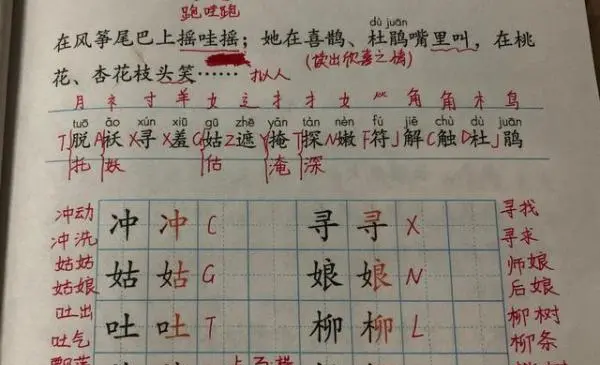 跑哇跑
dù juān
在风筝尾巴上摇哇摇；她在喜鹊、杜鹃嘴里叫，在桃
(读出欣喜之情)
花、杏花枝头笑…… 拟人
月 礻 寸 羊 女 辶 扌 扌 女 ⺮ 角 角 木 鸟
tuō ǎo xún xiū gū zhē yǎn tàn nèn fú jiě chù dù juān
T脱 A袄 X寻 X羞 G姑 Z遮 Y掩 T探 N嫩 F符 J解 C触 D杜 J鹃
托 妖 估 淹 深
冲动 冲 冲 C 寻 寻 X 寻找
冲洗 寻求
姑姑 姑 姑 G 娘 娘 N 师娘
姑娘 后娘
吐出 吐 吐 T 柳 柳 L 柳树
吐气 柳条
飘荡